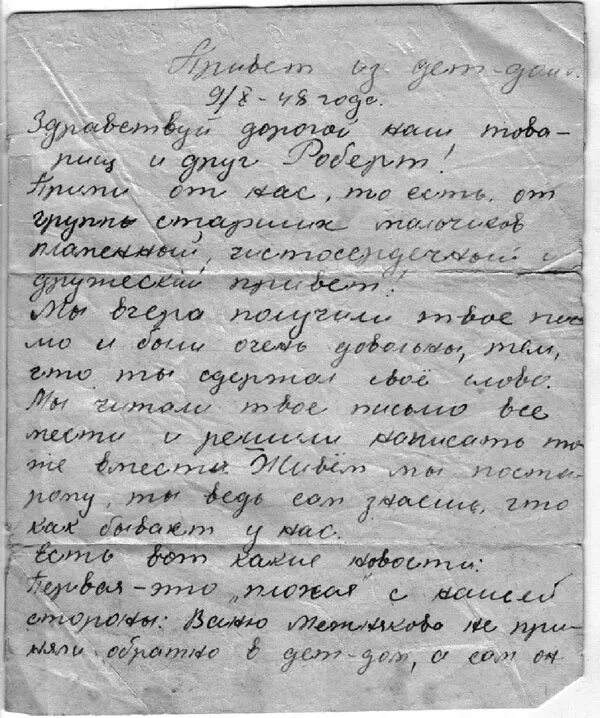 Привет из дет-дома.
9/X-48 года.
Здравствуй дорогой наш това-
рищ и друг Роберт!
Прими от нас, то есть от
группы старших мальчиков
пламенный, чистосердечный и
дружеский привет!
Мы вчера получили твое пись
мо и были очень довольны, тем,
что ты сдержал своё слово.
Мы читали твое письмо все
мести и решили написать то
же вместе. Живём мы поста-
рому, ты ведь сам знаешь, что
как бывает у нас.
Есть вот какие новости:
Первая-это „плохая" с нашей
стороны: Ваню не при-
няли обратно в дет-дом, а сам он